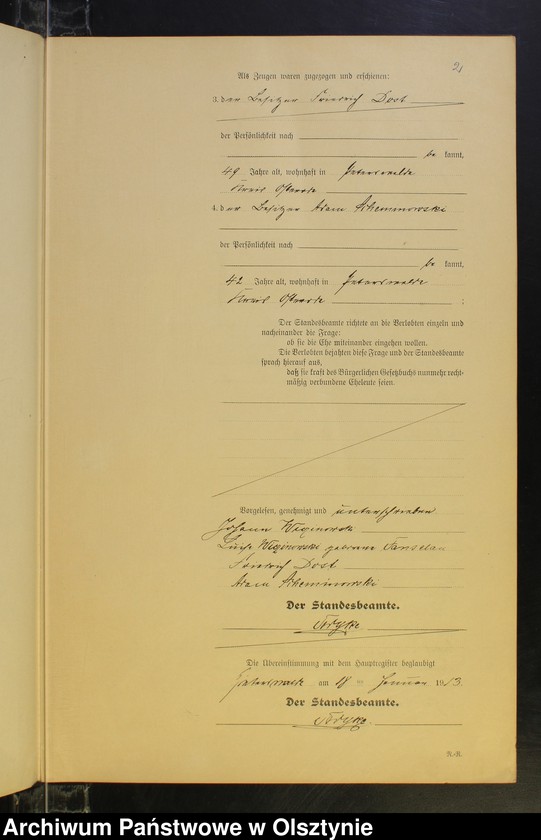 2
Als Zeugen waren zugezogen und erschienen:
3. der Besitzer Friedrich Dost
der Persönlichkeit nach
be kannt,
49 Jahre alt, wohnhaft in Peterswalde
Kreis Osterode
4. der Besitzer Adam Scheminowski
der Persönlichkeit nach
be kannt,
42 Jahre alt, wohnhaft in Peterswalde
Kreis Osterode ;
Der Standesbeamte richtete an die Verlobten einzeln und
nacheinander die Frage:
ob sie die Ehe miteinander eingehen wollen.
Die Verlobten bejahten diese Frage und der Standesbeamte
sprach hierauf aus,
daß sie kraft des Bürgerlichen Gesetzbuchs nunmehr recht-
mäßig verbundene Eheleute seien.
Vorgelesen, genehmigt und unterschrieben
Johann
Luise geborene Fanselau
Friedrich Dost
Adam Scheminowski
Der Standesbeamte.
Die Übereinstimmung mit dem Hauptregister beglaubigt
Peterswalde am 18 ten Januar 1913.
Der Standesbeamte.
R.-R.
Archiwum Państwowe w Olsztynie